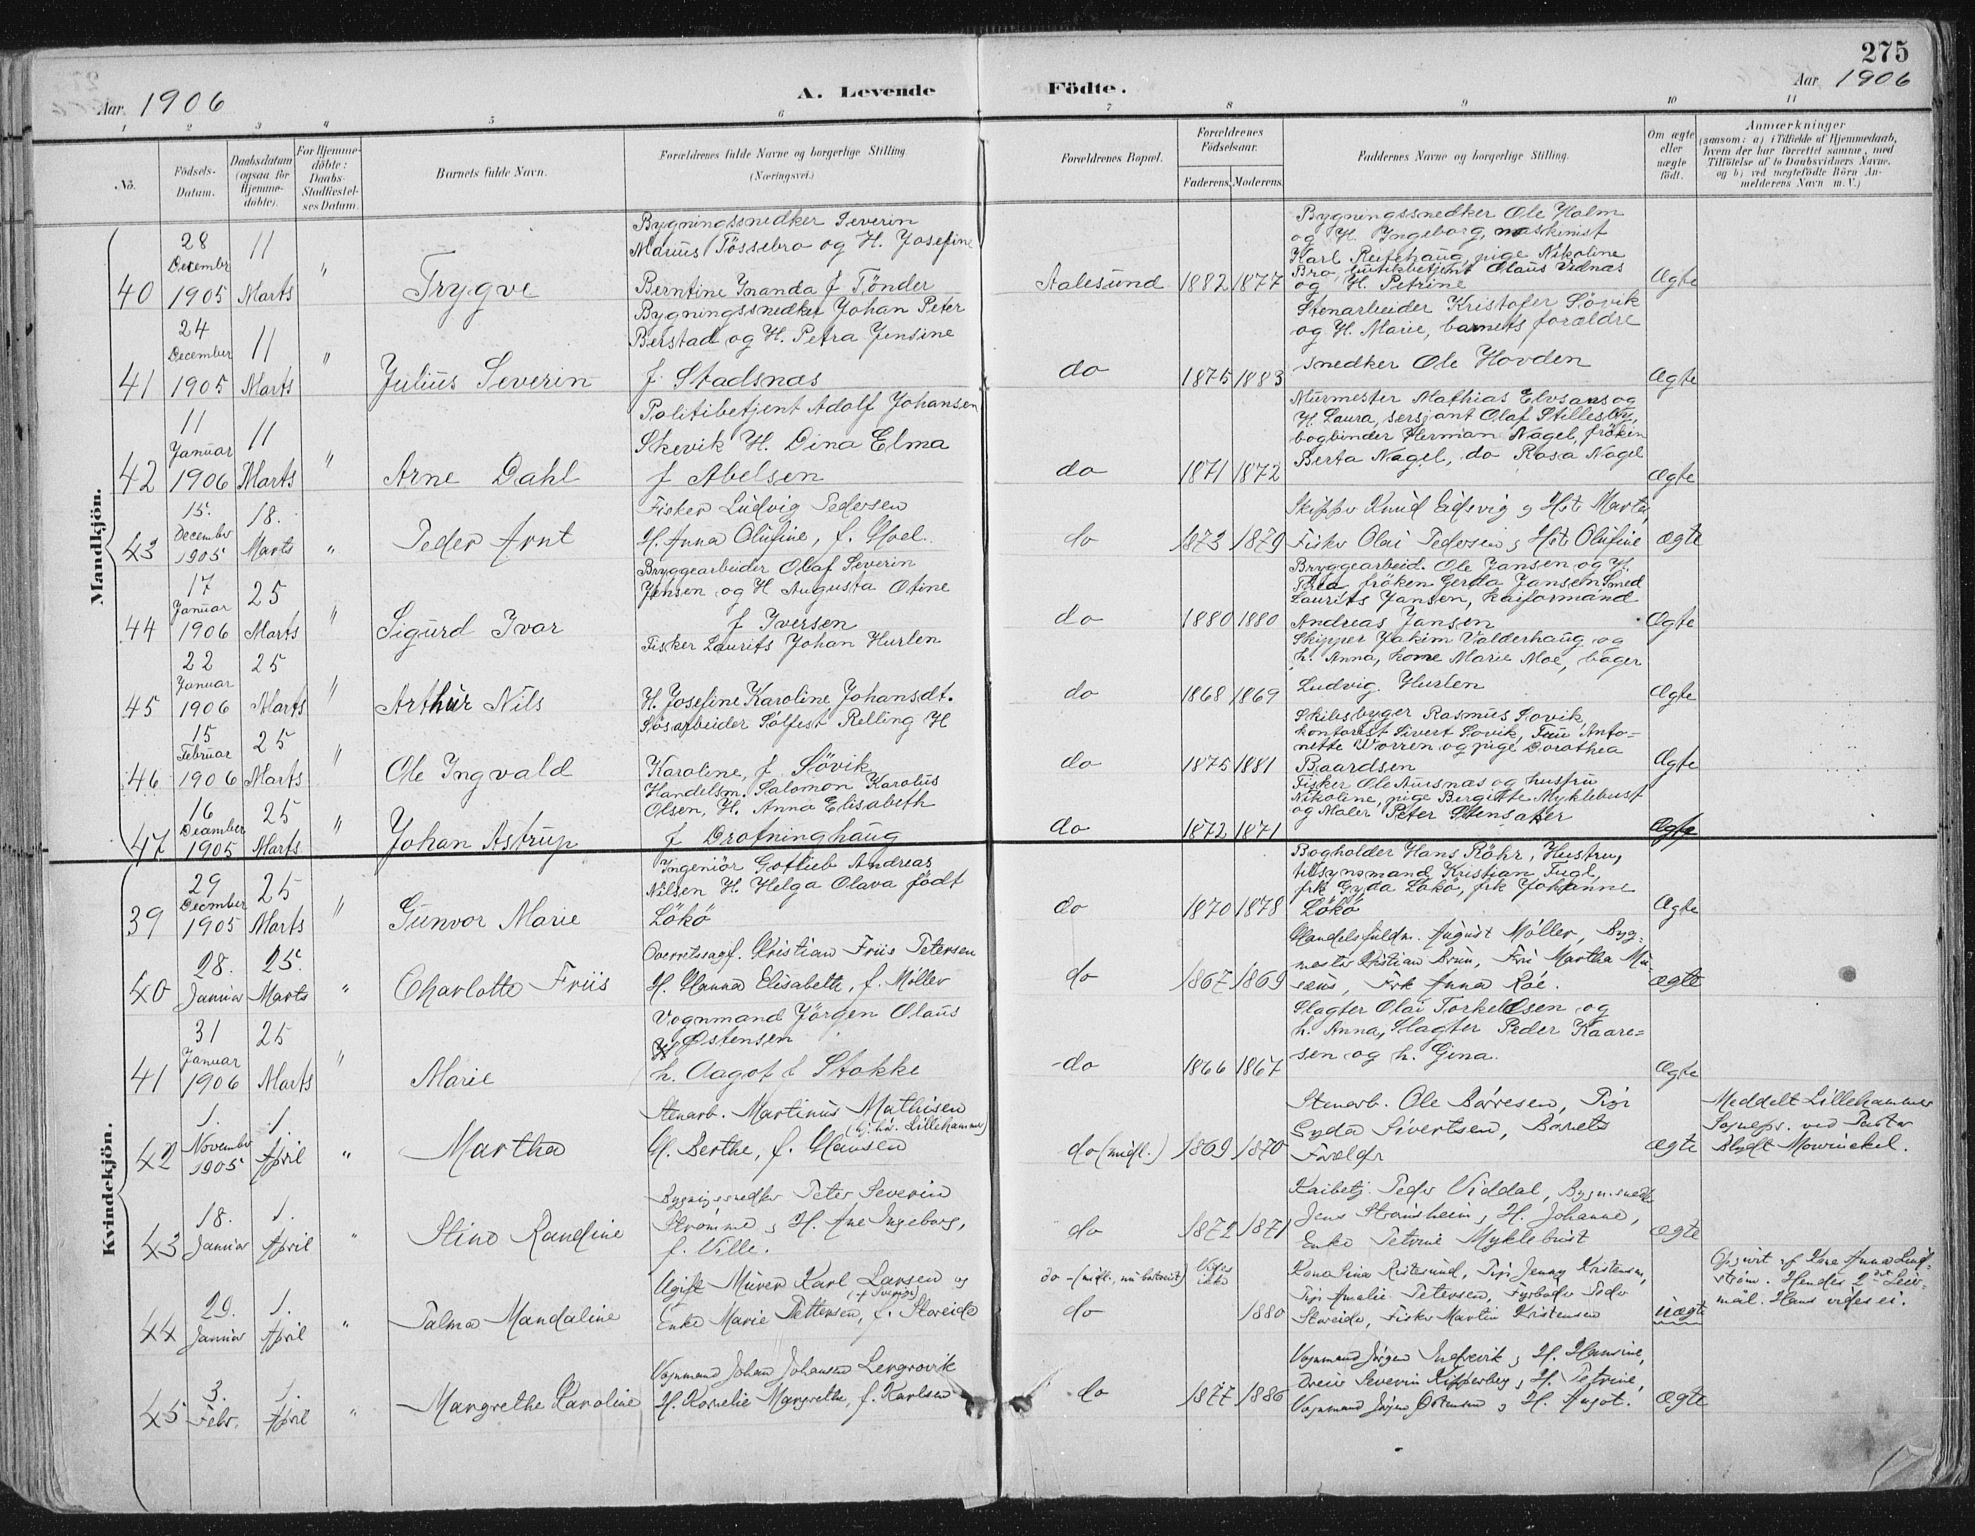 275
Aar 1906
A. Levende Födte.
Aar 1906
1 2 3 4 5 6 7 8 9 10 11
No.
Födsels-Datum.
Daabsdatum (ogsaa for Hjemme-döbte).
For Hjemme-döbte: Daabs-Stadfæstel-ses Datum.
Barnets fulde Navn.
Forældrenes fulde Navne og borgerlige Stilling. (Næringsvei.)
Forældrenes Bopæl.
Forældrenes Födselsaar.
Faderens. Moderens.
Faddernes Navne og borgerlige Stilling.
Om ægte eller uægte födt.
Anmærkninger
(saasom: a) i Tilfælde af Hjemmedaab, hvem der har forrettet samme, med Tilföielse af to Daabsvidners Navne, og b) ved uægtefödte Börn An-melderens Navn m. V.)
Mandkjön.
40
28 December 1905
11 Marts
"
Trygve
Bygningssnedker Severin
Marius Tössebro og H. Josefine
Berntine Inanda f Tönder
Aalesund
1882 1877
Bygningssnedker Ole Holm
og H. Ingeborg, maskinist
Karl Reitehaug, pige Nikoline
Bro, butikbetjent Olaus Vidnas
og H. Petrine
Ægte
41
24 December 1905
11 Marts
"
Julius Severin
Bygningssnedker Johan Peter
Berstad og H. Petra Jensine
f Stadsnas
do
1875 1883
Stenarbeider Kristofer Sövik
og H. Marie, barnets forældre
snedker Ole Hovden
Ægte
42
11 Januar 1906
11 Marts
"
Arne Dahl
Politibetjent Adolf Johansen
Skevik H. Dina Elma
f Abelsen
do
1871 1872
Murmester Mathias Elvsaas og
H. Laura, sersjant Olaf Stillesby,
bogbinder Herman Nagel, fröken
Berta Nagel, do Rosa Nagel
Ægte
43
15. December 1905
18. Marts
"
Peder Arnt
Fisker Ludvig Pedersen
H. Anna Olufine, f. Moel.
do
1873 1879
Skipper Knud Eidsvig og Hst Marta,
Fisker Olai Pedersen og Hst Olufine
ægte
44
17 Januar 1906
25 Marts
"
Sigurd Ivar
Bryggearbeider Olaf Severin
Jensen og H Augusta Otine
f Iversen
do
1880 1880
Bryggearbeid. Ole Jansen og H.
Thea, fröken Gerda Jansen Smed
Laurits Jansen, kaiformand
Andreas Jansen
Ægte
45
22 Januar 1906
25 Marts
"
Arthur Nils
Fisker Laurits Johan Hurlen
H. Josefine Karoline Johansdt.
do
1868 1869
Skipper Jakim Valderhaug og
h. Anna, kone Marie Moe, bager
Ludvig Hurlen
Ægte
46
15 Februar 1906
25 Marts
"
Ole Ingvald
Sösarbeider Sölfest Relling H
Karoline, f Sövik
do
1875 1881
Skibsbyger Rasmus Sovik,
kontorist Sivert Sovik, Frü Anto-
nette Worren og pige Dorothea
Baardsen
Ægte
47
16 December 1905
25 Marts
"
Johan Astrup
Handelsm. Salomon Karolus
Olsen, H. Anna Elisabeth
f Drotninghaug
do
1872 1871
Fisker Ole Auesnæs og hustru
Nikoline, pige Bergitte Myklebust
og Maler Peter Stensaker
Ægte
Kvindekjön.
39
29 December 1905
25 Marts
"
Gunvor Marie
Ingeniör Gotlieb Andreas
Nilsen H. Helga Olava födt
Lökö
do
1870 1878
Bogholder Hans Röhr, Hustru,
tilsynsmand Kristian Fugl,
frk Gyda Lökö, frk Johanne
Lökö
Ægte
40
28. Januar
25. Marts
"
Charlotte Friis
Overretssagf. Kristian Friis Petersen
H. Hanna Elisabeth, f. Möller
do
1867 1869
Handelsfuldm. August Möller, Byg-
mester Kristian Brun, Frü Martha Mu-
sæus, Frk Anna Röe.
ægte
41
31 Januar 1906
25 Marts
"
Marie
Vognmand Jörgen Olaus
Østensen
h. Aagot f Stokke
do
1866 1867
Slagter Olai Torkeldsen og
h. Anna, Slagter Peder Kaare-
sen og h. Gina.
Ægte
42
1. November 1905
1. April
"
Martha
Stenarb. Martinus Mathisen
(hj.hö. Lillehammer)
H. Berthe, f. Hansen
do (midl.)
1869 1870
Stenarb. Ole Börresen, Pige
Gyda Sivertsen, Barnets
Forældr
ægte
Meddelt Lillehammer
Sognepr. ved Pastor
Blydt Mowinckel.
43
18. Januar
1. April
"
Stine Randine
Bygningssnedker Peter Severin
Strömme og H. Ane Ingeborg,
f. Ville.
do
1872 1871
Kaibetj. Peder Viddal, Bygn.snedk
Jens Strömsheim og H. Johanne,
Enke Petrine Myklebust
ægte
44
29. Januar
1. April
"
Palma Mandaline
Ugift Murer Karl Larsen og
(f Sverige)
Enke Marie Pettersen, f. Storeide
do - (midl., nu bortreist)
do
Vides ikke
1880
Kona Sina Ristesund, Pige Jenny Kristensen,
Pige Amalie Petersen, Fyrböder Peder
Storeide, Fisker Martin Kristensen
uægte
Opgivit af Kone Anna Lind-
ström. Hendes 2det Leier-
maal. Hans vides ei.
45
3. Febr.
1. April
"
Margrethe Karoline
Vognmand Johan Johansen Lengrovik
H. Kornelie Margrethe, f. Karlsen
do
1877 1886
Vognmand Jörgen Indrevik og H. Hansine,
Dreier Severin Kipperberg og H. Petrine,
Vognmand Jörgen Östensen og H. Aagot.
ægte